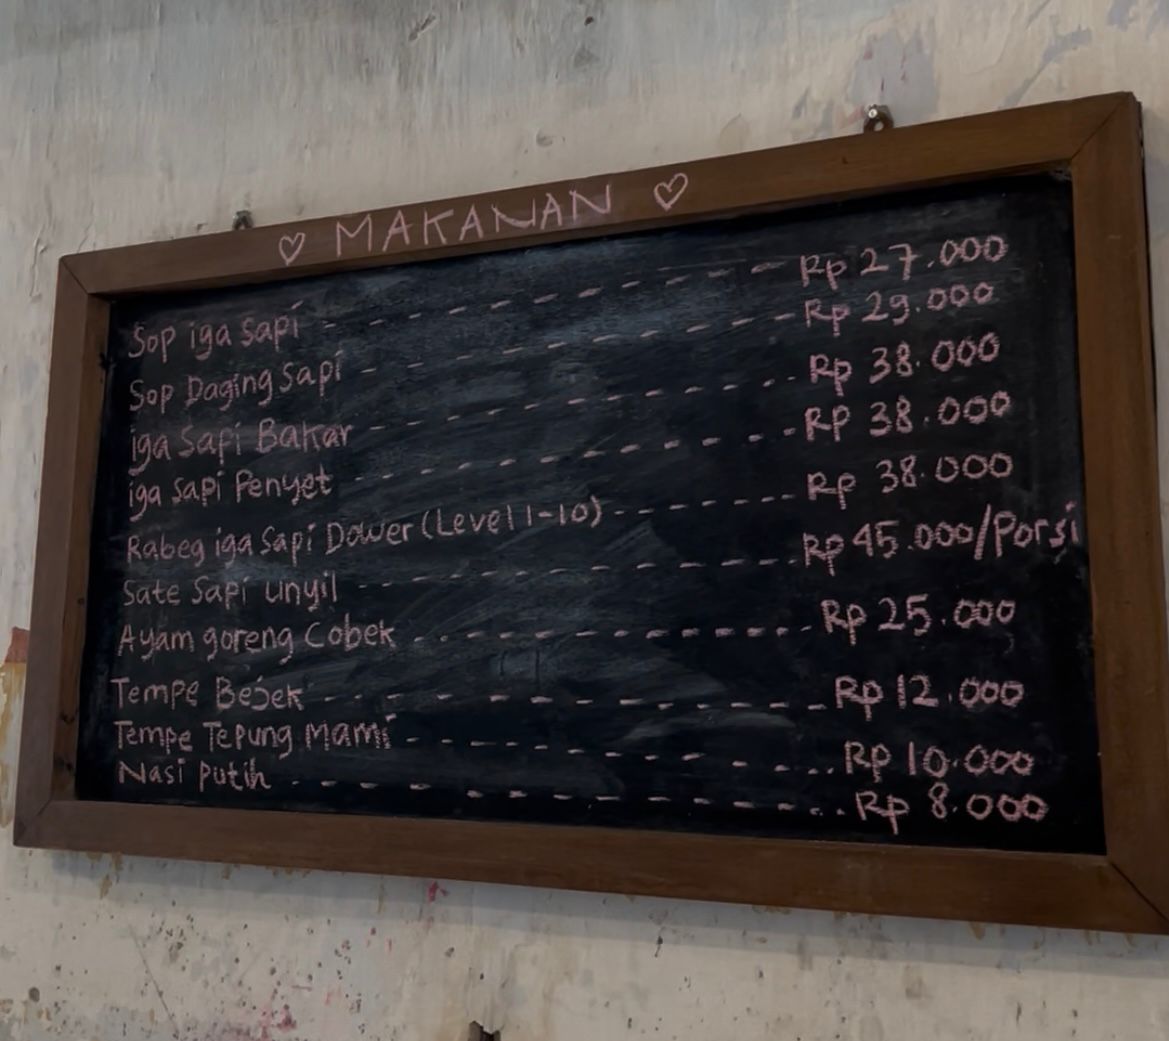 ♡ MAKANAN ♡
Sop iga sapi - - - - - - - - - - - - Rp 27.000
Sop Daging Sapi - - - - - - - - - - - Rp 29.000
iga Sapi Bakar - - - - - - - - - - - Rp 38.000
iga sapi Penyet - - - - - - - - - - - Rp 38.000
Rabeg iga Sapi Dower (Level 1-10) - - - - - - - Rp 38.000
Sate Sapi Unyil - - - - - - - - - - - Rp 45.000/Porsi
Ayam goreng Cobek - - - - - - - - - - - Rp 25.000
Tempe Bejek - - - - - - - - - - - Rp 12.000
Tempe Tepung Mami - - - - - - - - - - - Rp 10.000
Nasi putih - - - - - - - - - - - Rp 8.000